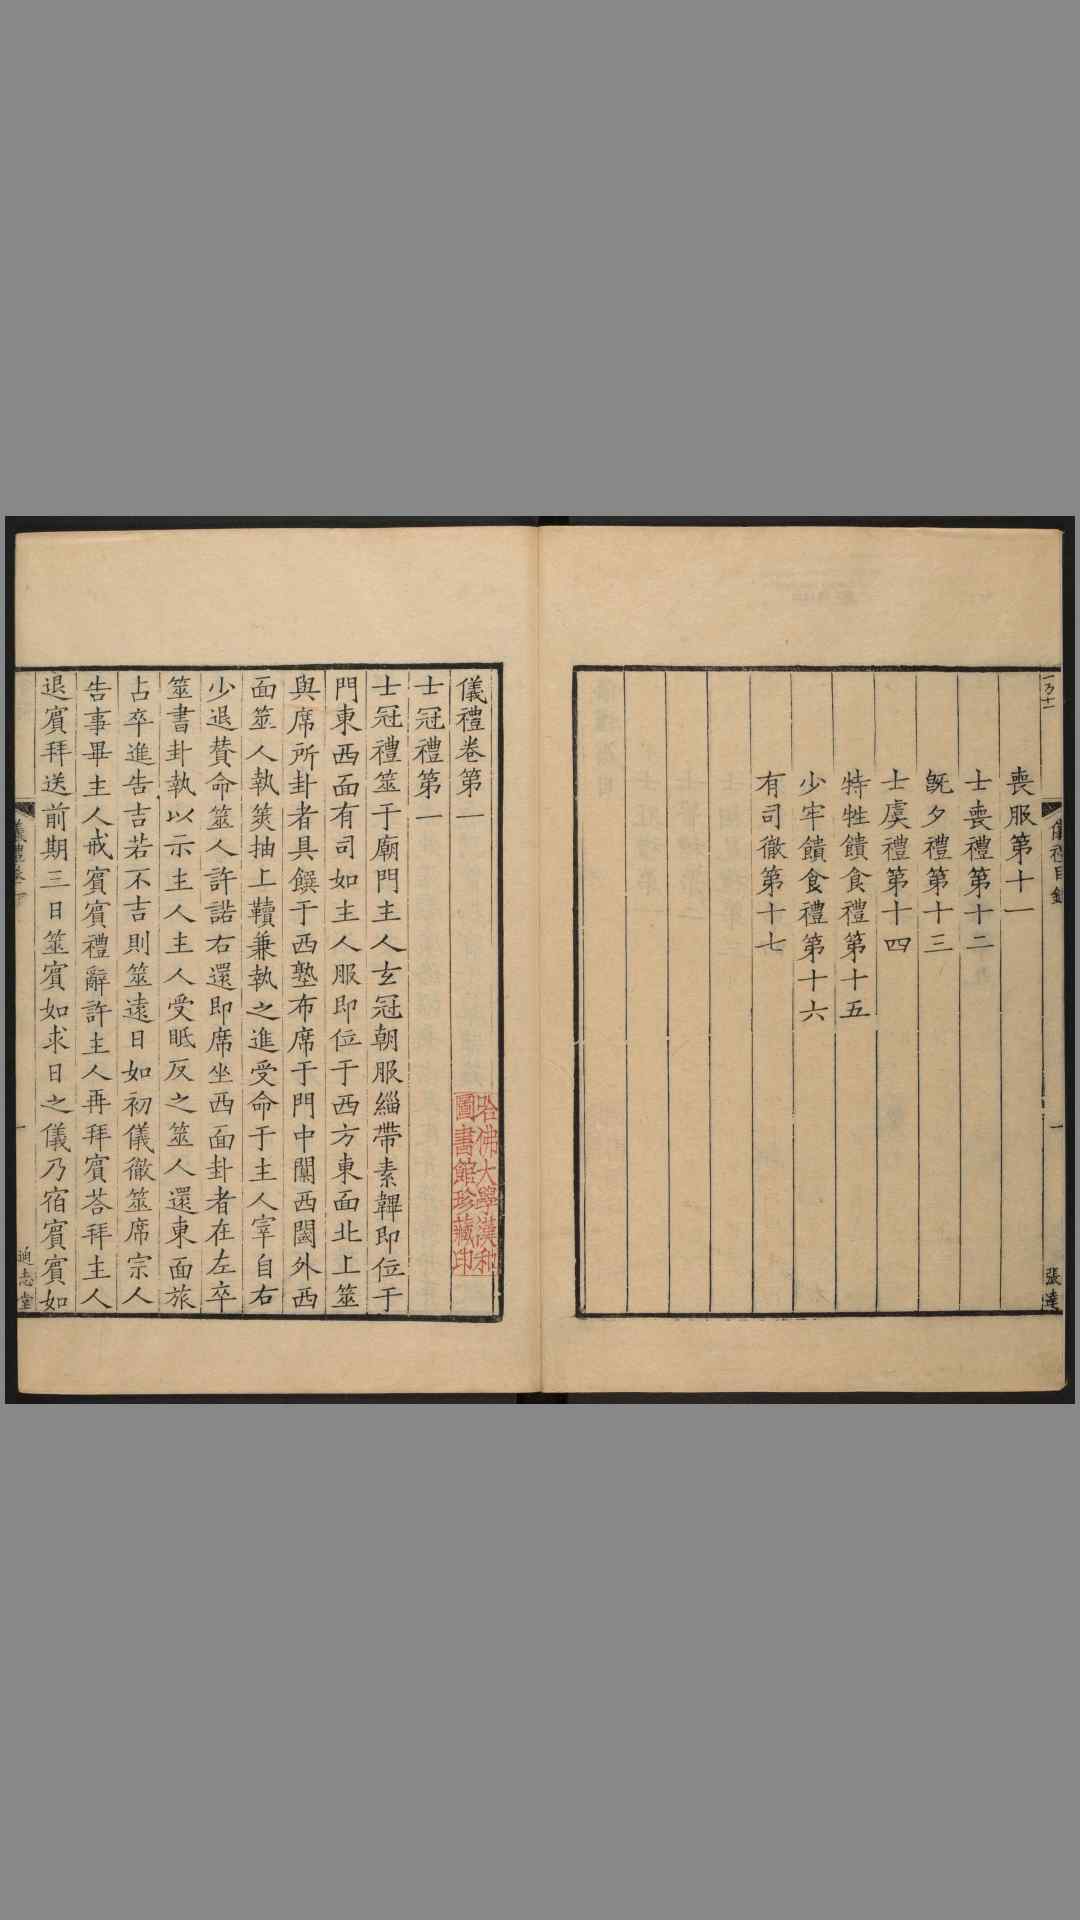 儀禮目錄
一
張達
喪服第十一
士喪禮第十二
旣夕禮第十三
士虞禮第十四
特牲饋食禮第十五
少牢饋食禮第十六
有司徹第十七
儀禮卷第一
哈佛大學漢和
圖書館珍藏印
士冠禮第一
士冠禮筮于廟門主人玄冠朝服緇帶素韠即位于
門東西面有司如主人服即位于西方東面北上筮
與席所卦者具饌于西塾布席于門中闑西閾外西
面筮人執筴抽上韇兼執之進受命于主人宰自右
少退賛命筮人許諾右還即席坐西面卦者在左卒
筮書卦執以示主人主人受眡反之筮人還東面旅
占卒進告吉若不吉則筮遠日如初儀徹筮席宗人
告事畢主人戒賓賓禮辭許主人再拜賓荅拜主人
退賓拜送前期三日筮賓如求日之儀乃宿賓賓如
儀禮卷一
一
通志堂